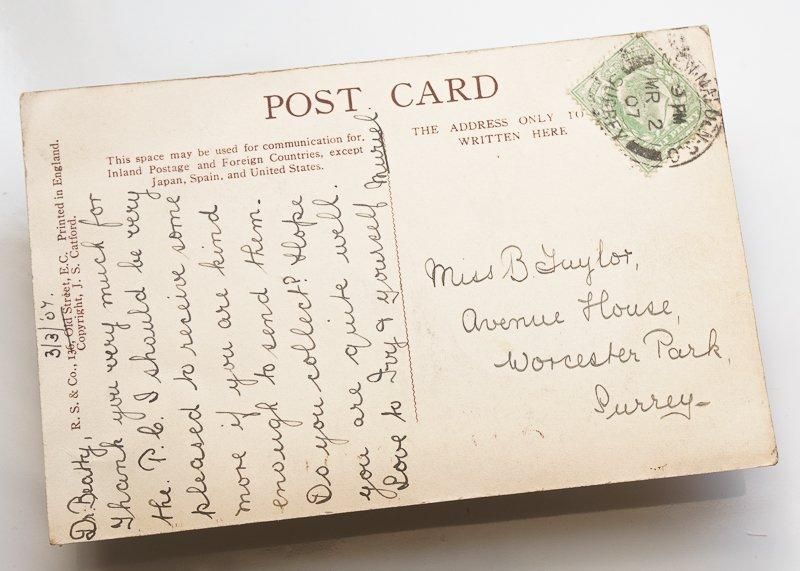 POST CARD
This space may be used for communication for.
Inland Postage and Foreign Countries, except
Japan, Spain, and United States.
THE ADDRESS ONLY TO
WRITTEN HERE
R. S. & Co., 136, Old Street, E.C. Printed in England.
Copyright, J. S. Catford.
3/3/07.
Dr. Beatty,
Thank you very much for
the P.C. I should be very
pleased to receive some
more if you are kind
enough to send them.
Do you collect? Hope
you are quite well.
Love to Ivy & yourself Muriel.
Miss B. Taylor,
Avenue House,
Worcester Park,
Surrey
3 PM
MR 2
07
SURREY